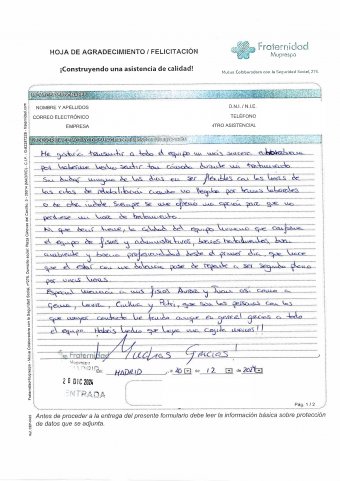 HOJA DE AGRADECIMIENTO / FELICITACIÓN
Fraternidad
Muprespa
¡Construyendo una asistencia de calidad!
Mutua Colaboradora con la Seguridad Social, 275
NOMBRE Y APELLIDOS
D.N.I. / N.I.E.
CORREO ELECTRÓNICO
TELÉFONO
EMPRESA
NTRO ASISTENCIAL
Me gustaría transmitir a todo el equipo mi más sincera
por haberme hecho sentir tan cómoda durante mi tratamiento
Sin dudar ninguno de los días en ser flexibles con las horas de
las citas de rehabilitación cuando no llegaba por temas laborales
o de otra índole. Siempre se me ofreció una opción para que no
perdiese mi hora de tratamiento.
el equipo de fisios y administrativos, buenos tratamientos, buen
ambiente y buena profesionalidad desde el primer día, que hace
que el estar con una dolencia pase de repente a ser segundo plano
por unas horas.
Especial mención a mis fisios y Juan así como a
Gema, Laura, y que son las personas con las
que mayor contacto he tenido aunque en general gracias a todo
el equipo. Habéis hecho que
¡Muchas Gracias!
Fraternidad
Muprespa
MADRID
20 DIC 2024
ENTRADA
MADRID, a 20 de 12 de 2024
Pág. 1 / 2
Antes de proceder a la entrega del presente formulario debe leer la información básica sobre protección
de datos que se adjunta.